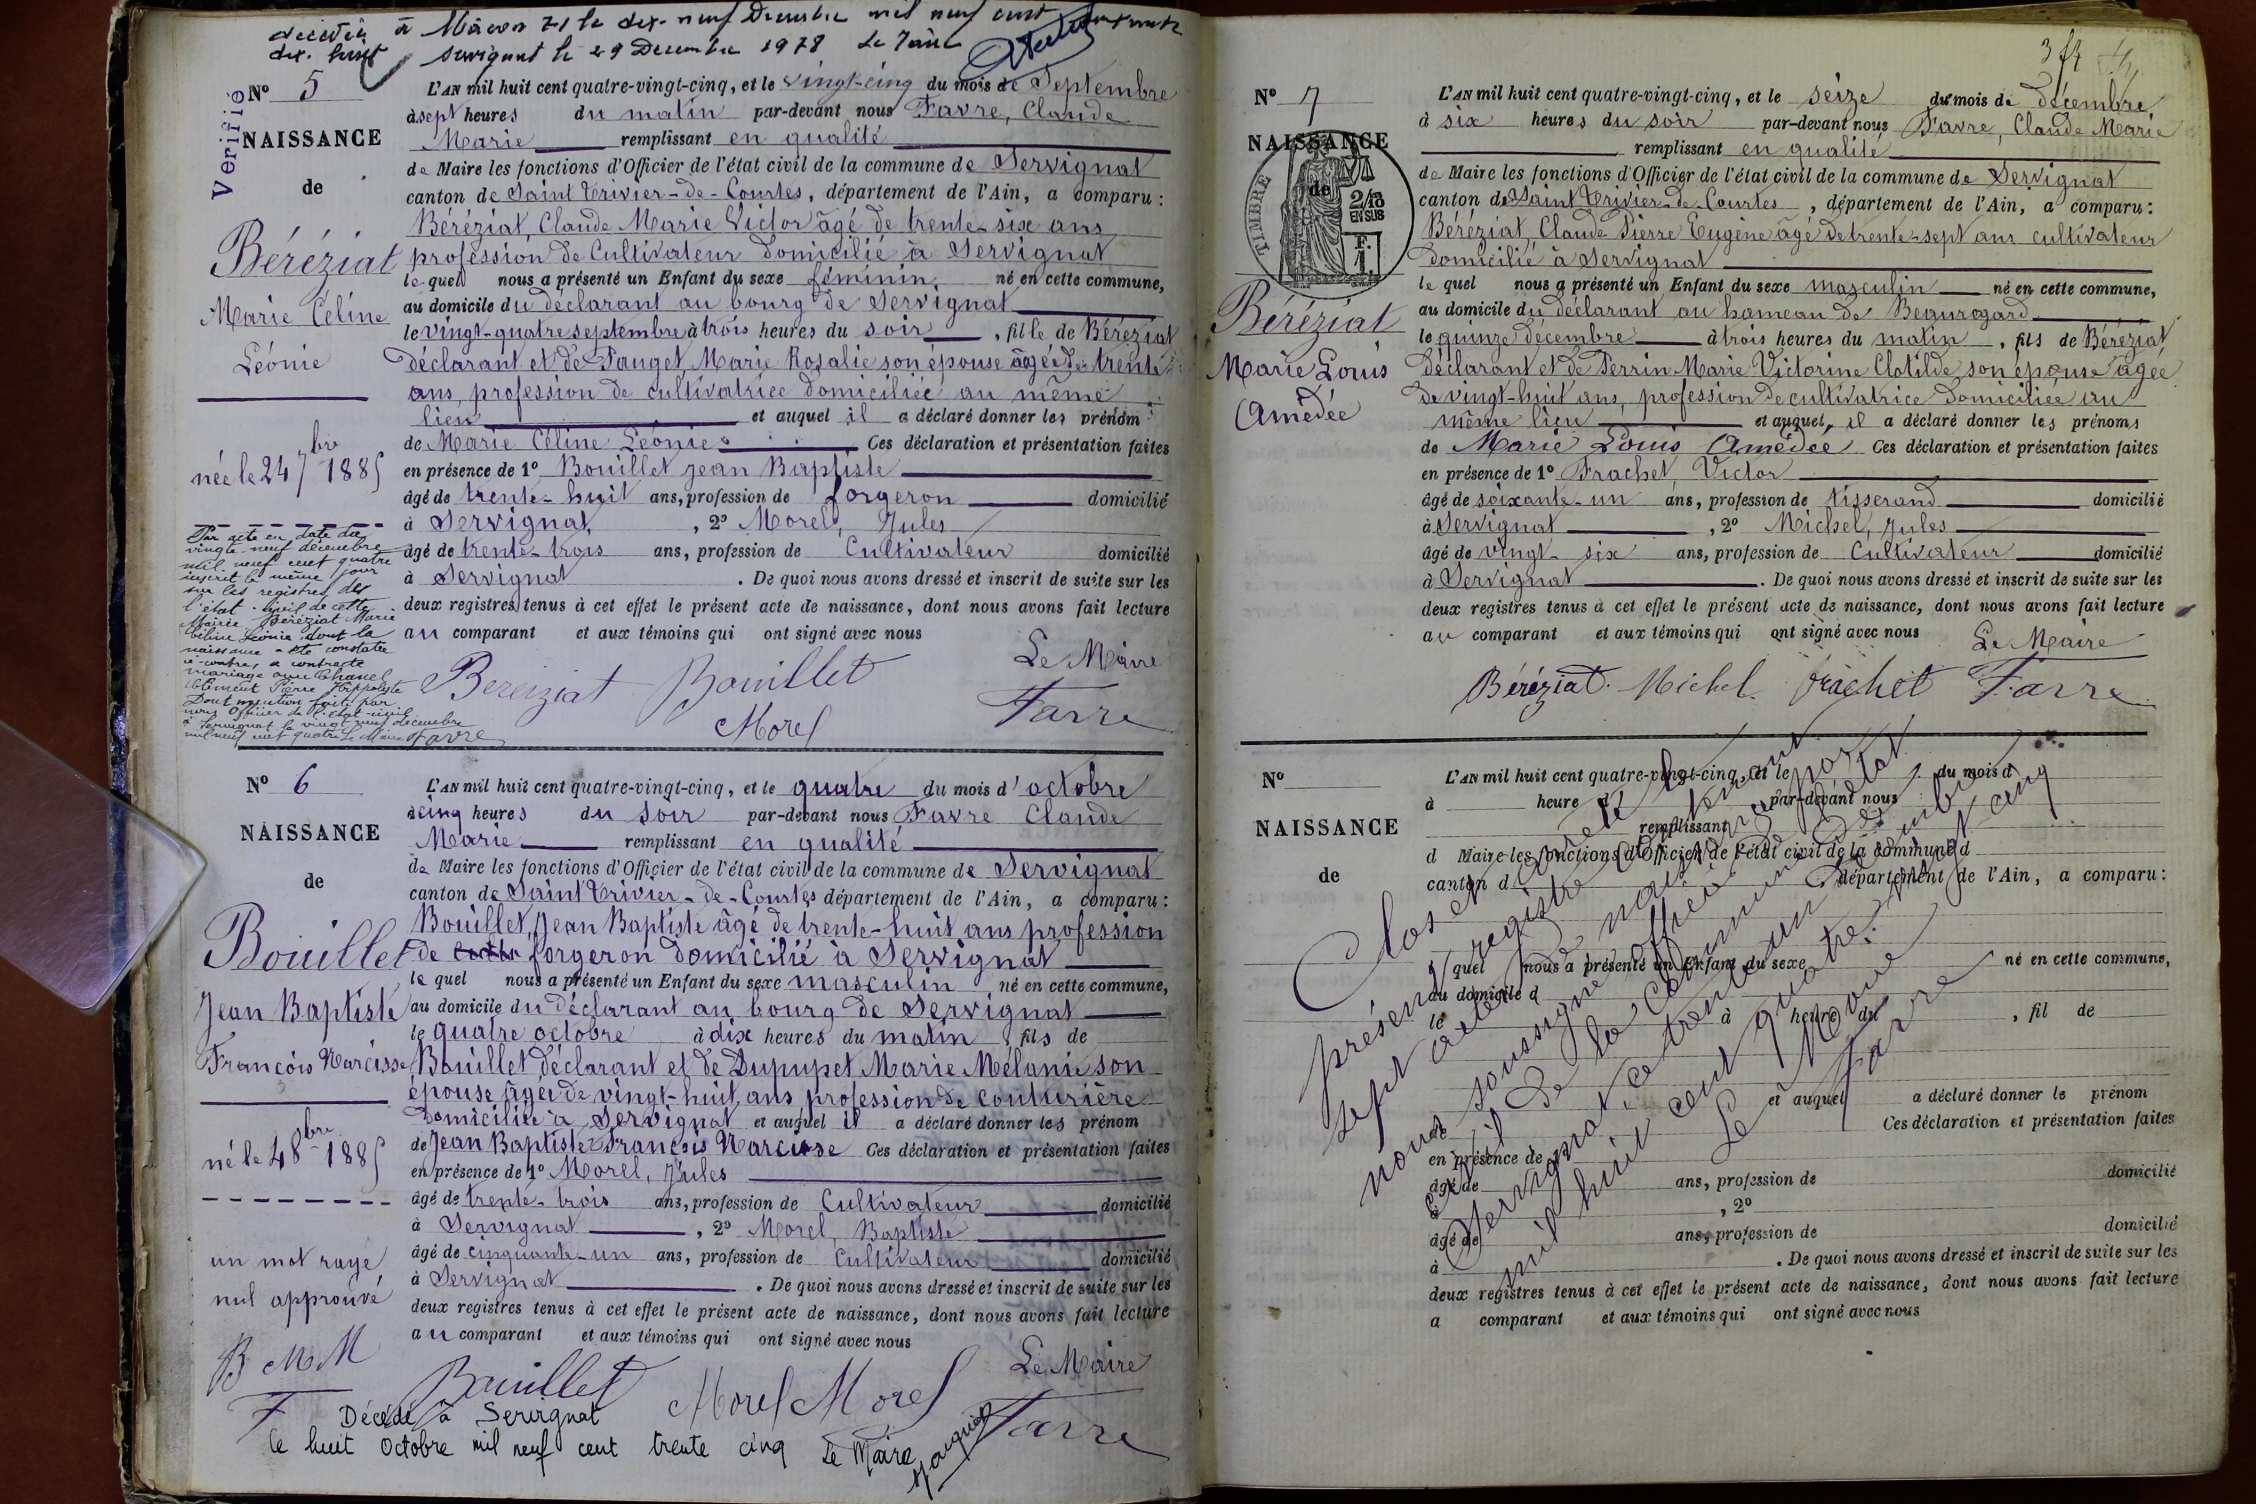 décédée à Mâcon 71 le dix-neuf Décembre mil neuf cent
dix huit Servignat le 29 Decembre 1978 Le Maire
Verifié
Nº 5
NAISSANCE
de
Béréziat
Marie Céline
Léonie
née le 24 7bre 1885
Par acte en date du
vingt-neuf décembre
mil neuf cent quatre
inscrit le même jour
sur les registres de
l'état-civil de cette
Mairie Béréziat Marie
Céline Léonie dont la
naissance a été constatée
ci-contre, a contracté
mariage avec Chanel
Clément Pierre Hippolyte
Dont mention faite par
nous Officier de l'état-civil
à Servignat le vingt neuf décembre
mil neuf cent quatre Le Maire Favre
L'AN mil huit cent quatre-vingt-cinq, et le vingt-cinq du mois de Septembre
à sept heures du matin par-devant nous Favre, Claude
Marie remplissant en qualité
de Maire les fonctions d'Officier de l'état civil de la commune de Servignat
canton de Saint Trivier-de-Courtes, département de l'Ain, a comparu :
Béréziat, Claude Marie Victor âgé de trente-six ans
profession de Cultivateur domicilié à Servignat
le quel nous a présenté un Enfant du sexe féminin né en cette commune,
au domicile du déclarant au bourg de Servignat
le vingt-quatre septembre à trois heures du soir, fille de Béréziat
déclarant et de Fauget Marie Rosalie son épouse âgée de trente
ans, profession de cultivatrice domiciliée au même
lieu et auquel il a déclaré donner les prénoms
de Marie Céline Léonie Ces déclaration et présentation faites
en présence de 1º Bouillet Jean Baptiste
âgé de trente-huit ans, profession de forgeron domicilié
à Servignat, 2º Morel, Jules
âgé de trente-trois ans, profession de Cultivateur domicilié
à Servignat. De quoi nous avons dressé et inscrit de suite sur les
deux registres tenus à cet effet le présent acte de naissance, dont nous avons fait lecture
au comparant et aux témoins qui ont signé avec nous
Le Maire
Bereiziat Bouillet
Morel Favre
Nº 6
NAISSANCE
de
Bouillet
Jean Baptiste
François Narcisse
né le 4 8bre 1885
un mot rayé
nul approuvé
B M M
F
L'AN mil huit cent quatre-vingt-cinq, et le quatre du mois d'octobre
à cinq heures du soir par-devant nous Favre Claude
Marie remplissant en qualité
de Maire les fonctions d'Officier de l'état civil de la commune de Servignat
canton de Saint Trivier-de-Courtes département de l'Ain, a comparu :
Bouillet, Jean Baptiste âgé de trente-huit ans profession
de forgeron domicilié à Servignat
le quel nous a présenté un Enfant du sexe masculin né en cette commune,
au domicile du déclarant au bourg de Servignat
le quatre octobre à dix heures du matin, fils de
Bouillet déclarant et de Dupupet Marie Mélanie son
épouse âgée de vingt-huit ans profession de couturière
domiciliée à Servignat et auquel il a déclaré donner les prénom
de Jean Baptiste François Narcisse Ces déclaration et présentation faites
en présence de 1º Morel, Jules
âgé de trente-trois ans, profession de Cultivateur domicilié
à Servignat, 2º Morel, Baptiste
âgé de cinquante-un ans, profession de Cultivateur domicilié
à Servignat. De quoi nous avons dressé et inscrit de suite sur les
deux registres tenus à cet effet le présent acte de naissance, dont nous avons fait lecture
au comparant et aux témoins qui ont signé avec nous
Le Maire
Bouillet Morel Morel Favre
Décédé à Servignat
le huit Octobre mil neuf cent trente cinq Le Maire
3 f
Nº 7
NAISSANCE
de
TIMBRE
2/10
EN SUS
F.
1.
Béréziat
Marie Louis
Amédée
L'AN mil huit cent quatre-vingt-cinq, et le seize du mois de décembre
à six heures du soir par-devant nous Favre, Claude Marie
remplissant en qualité
de Maire les fonctions d'Officier de l'état civil de la commune de Servignat
canton de Saint Trivier-de-Courtes, département de l'Ain, a comparu :
Béréziat, Claude Pierre Eugène âgé de trente-sept ans cultivateur
domicilié à Servignat
le quel nous a présenté un Enfant du sexe masculin né en cette commune,
au domicile du déclarant au hameau de Beauregard
le quinze décembre à trois heures du matin, fils de Béréziat
déclarant et de Perrin Marie Victorine Clotilde son épouse âgée
de vingt-huit ans, profession de cultivatrice domiciliée au
même lieu et auquel il a déclaré donner les prénoms
de Marie Louis Amédée Ces déclaration et présentation faites
en présence de 1º Frachet, Victor
âgé de soixante-un ans, profession de tisserand domicilié
à Servignat, 2º Michel, Jules
âgé de vingt-six ans, profession de Cultivateur domicilié
à Servignat. De quoi nous avons dressé et inscrit de suite sur les
deux registres tenus à cet effet le présent acte de naissance, dont nous avons fait lecture
au comparant et aux témoins qui ont signé avec nous
Le Maire
Béréziat. Michel. frachet Favre
Nº
NAISSANCE
de
L'AN mil huit cent quatre-vingt-cinq, et le du mois d
à heure d par-devant nous
remplissant
d Maire les fonctions d'Officier de l'état civil de la commune d
canton d département de l'Ain, a comparu :
quel nous a présenté un Enfant du sexe né en cette commune,
au domicile d
le à heure du , fil de
et auquel a déclaré donner le prénom
de Ces déclaration et présentation faites
en présence de 1º
âgé de ans, profession de domicilié
à , 2º
âgé de ans, profession de domicilié
à . De quoi nous avons dressé et inscrit de suite sur les
deux registres tenus à cet effet le présent acte de naissance, dont nous avons fait lecture
a comparant et aux témoins qui ont signé avec nous
Clos et arrêté le
présent registre contenant
sept actes de naissance par
nous soussigné officier de l'état
civil de la Commune de
Servignat, ce trente un Décembre
mil huit cent quatre-vingt cinq
Le Maire
Favre